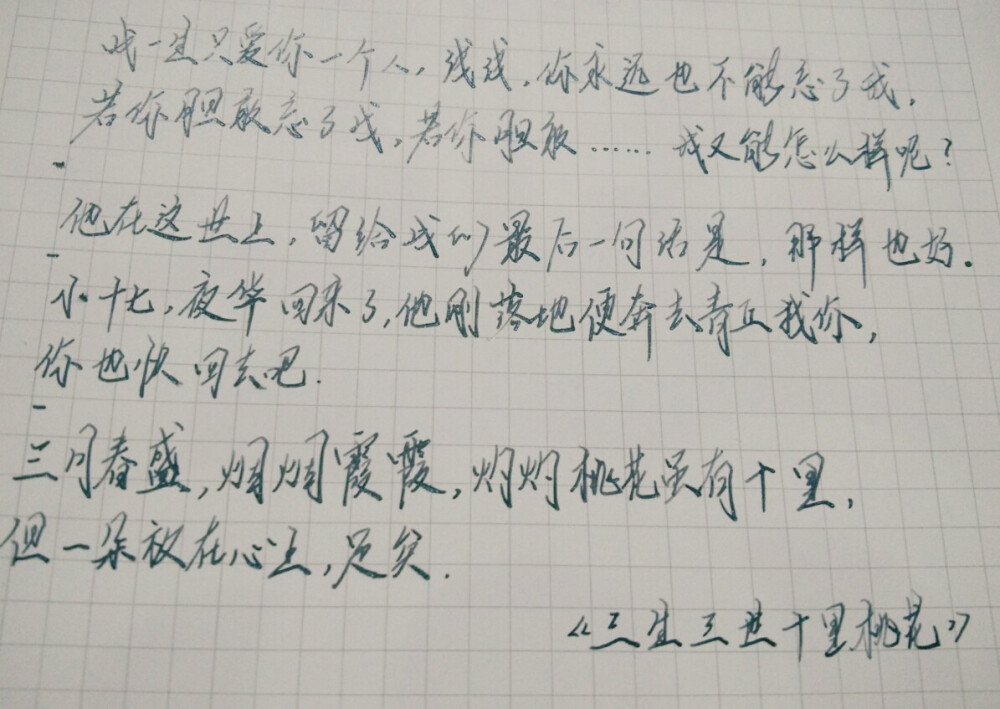 我一生只爱你一个人，浅浅，你永远也不能忘了我，
若你胆敢忘了我，若你胆敢……我又能怎么样呢？
他在这世上，留给我们最后一句话是，那样也好.
小十七，夜华回来了，他刚落地便奔去青丘找你，
你也快回去吧.
三月春盛，烟烟霞霞，灼灼桃花虽有十里，
但一朵放在心上，足矣.
《三生三世十里桃花》